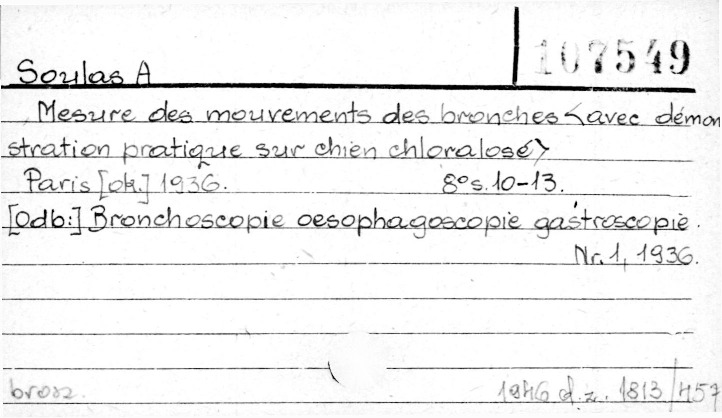 107549
Soulas A
Mesure des mouvements des bronches <avec démon
stration pratique sur chien chloralosé>
Paris [ok.] 1936. 8° s. 10-13.
[Odb:] Bronchoscopie oesophagoscopie gastroscopie.
Nr. 1, 1936.
brosz. 1946 d. z. 1813/457